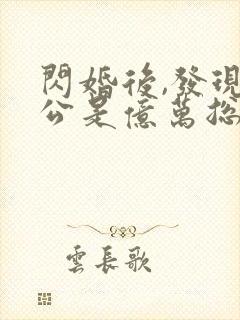 閃婚後,發現
公是億萬總
雲長歌